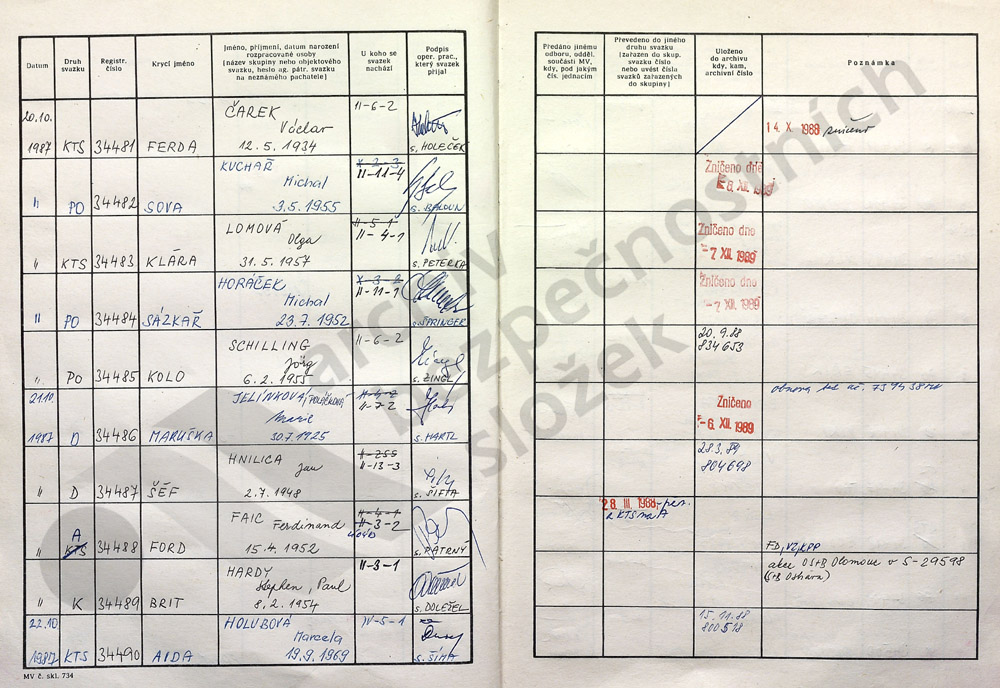 Datum
Druh
svazku
Registr.
číslo
Krycí jméno
Jméno, příjmení, datum narození
rozpracované osoby
(název skupiny nebo objektového
svazku, heslo ag. pátr. svazku
na neznámého pachatele)
U koho se
svazek
nachází
Podpis
oper. prac.,
který svazek
přijal
Předáno jinému
odboru, odděl.
součásti MV,
kdy, pod jakým
čís. jednacím
Převedeno do jiného
druhu svazku
(zařazen do skup.
svazku číslo
nebo uvést čísla
svazků zařazených
do skupiny)
Uloženo
do archivu
kdy, kam,
archivní číslo
Poznámka
20.10.
1987 KTS 34481 FERDA
ČAREK
Václav
12.5.1934
II-6-2
s. HOLEČEK
14. X. 1988 zničeno
" PO 34482 SOVA
KUCHAŘ
Michal
3.5.1955
II-11-4
s. BALOUN
Zničeno dne
8. XII. 1989
" KTS 34483 KLÁRA
LOMOVÁ
Olga
31.5.1957
II-5-1
II-4-1
s. PETERKA
Zničeno dne
-7 XII. 1989
" PO 34484 SÁZKAŘ
HORÁČEK
Michal
23.7.1952
II-11-1
s. SPRINGER
Zničeno dne
-7 XII. 1989
" PO 34485 KOLO
SCHILLING
Jörg
6.2.1955
II-6-2
s. ZINGL
20.9.88
834653
21.10.
1987 D 34486 MARUŠKA
JELÍNKOVÁ,
Marie
30.7.1925
4-7-2
s. HARTL
Zničeno
-6. XII. 1989
obnova
" D 34487 ŠÉF
HNILICA
Jan
2.7.1948
II-255
II-13-3
s. SIFTA
28.3.89
804698
" A KTS 34488 FORD
FAIC Ferdinand
15.4.1952
II-4-1
II-3-2
s. PATRNÝ
28. III. 1988
z KTS na A
" K 34489 BRIT
HARDY
Stephen, Paul
8.2.1954
II-3-1
s. DOLEŽEL
akce OStB Olomouc v S-29598
22.10
1987 KTS 34490 AIDA
HOLUBOVÁ
Marcela
19.9.1969
IV-5-1
s. ŠÍMA
15.11.88
MV č. skl. 734
archiv
bezpečnostních
složek